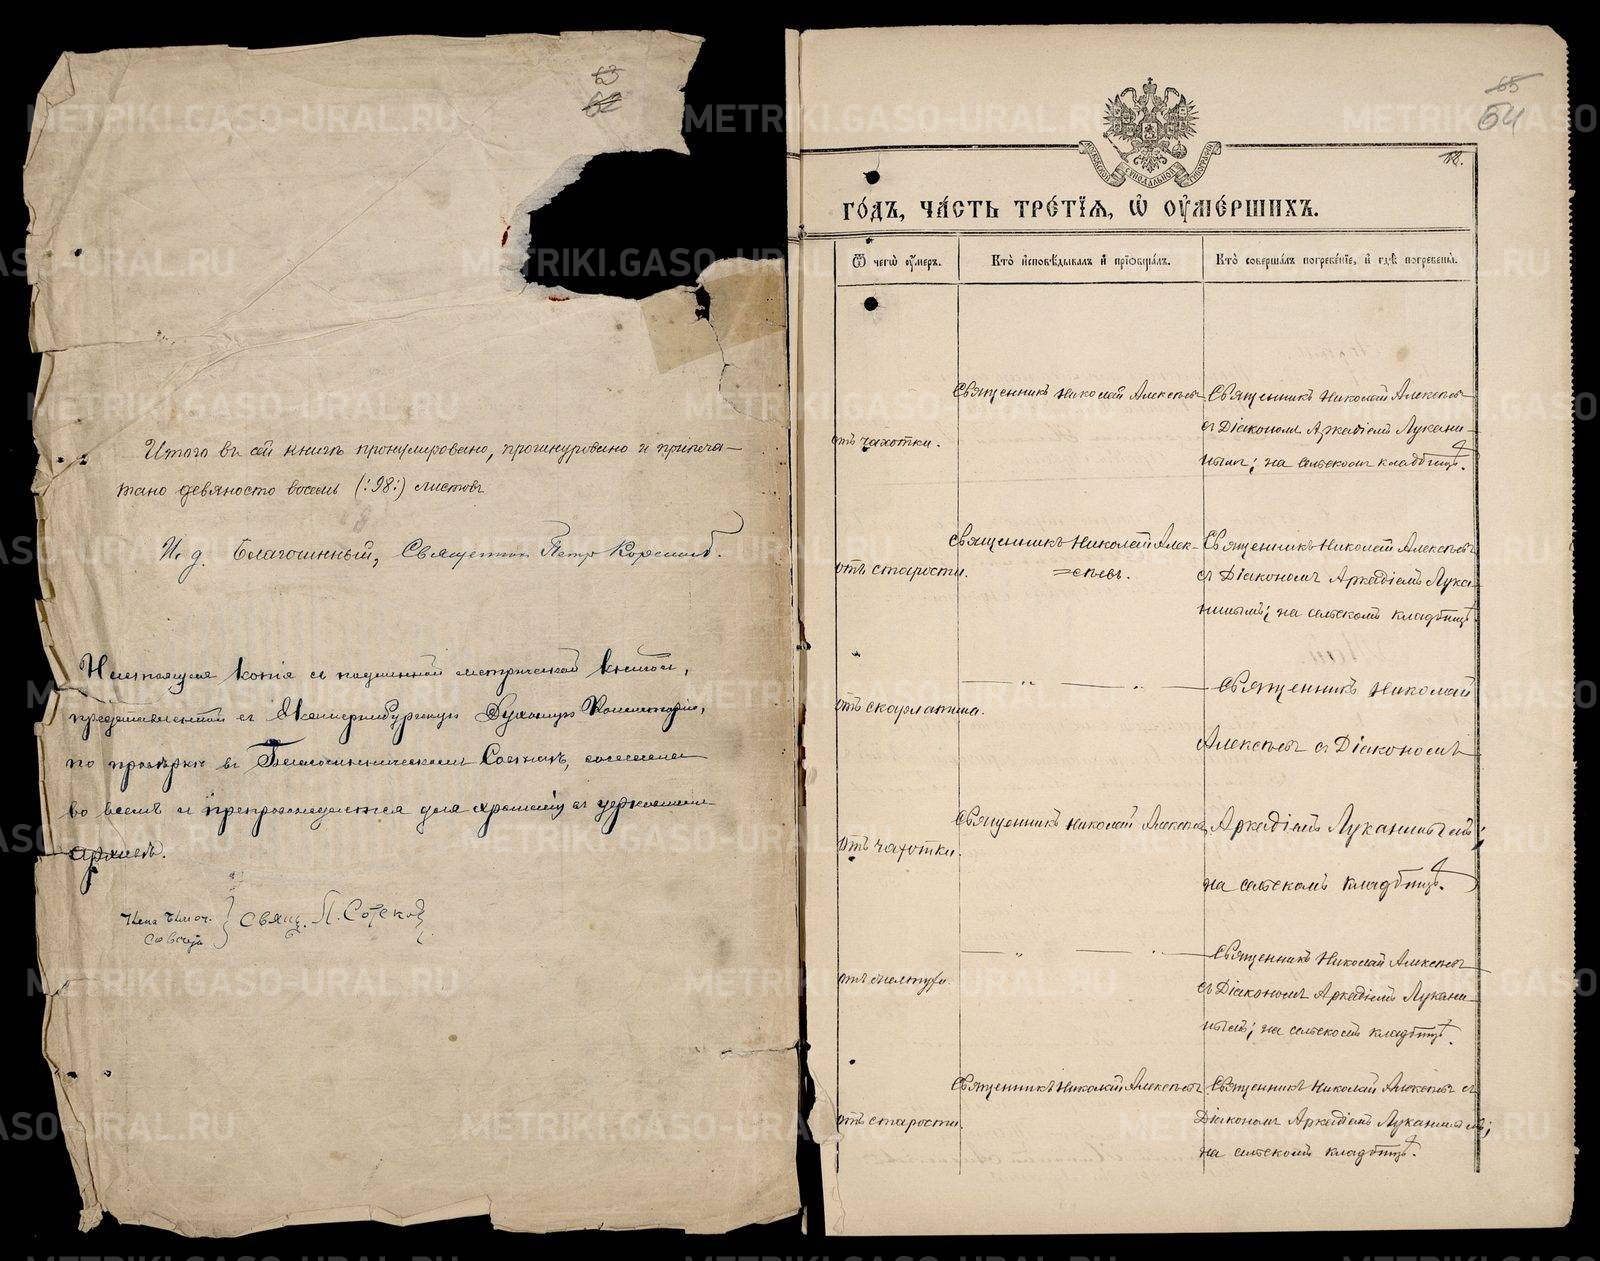 63
62
Итого въ сей книгѣ пронумеровано, прошнуровано и припеча-
тано девяносто восемь (:98:) листовъ
И. д. Благочинный, Священникъ Петръ
Настоящая копія съ подлинной метрической книгой,
представленной въ Екатеринбургскую Духовную Консисторію,
по провѣркѣ въ Благочинническомъ Совѣтѣ, согласна
во всемъ и препровождается для храненія въ церковномъ
архивѣ.
Свящ. П.
65
64
МОСКОВСКОЙ СѴНОДАЛЬНОЙ ТИПОГРАФІИ
118.
ГО́ДЪ, ЧА́СТЬ ТРЕ́ТІѦ, Ѿ ОУ҆МЕ́РШИХЪ.
Ѿ чегѡ̀ оу҆́меръ.
Кто̀ и҆сповѣ́дывалъ и҆ прїѡбща́лъ.
Кто̀ соверша́лъ погребе́нїе, и҆ гдѣ̀ погребены̀.
отъ чахотки.
Священникъ Николай Алексѣевъ
Священникъ Николай Алексѣевъ
съ Діакономъ Аркадіемъ Лукани-
нымъ; на сельскомъ кладбищѣ.
отъ старости.
Священникъ Николай Алек-
=сѣевъ.
Священникъ Николай Алексѣевъ
съ Діакономъ Аркадіемъ Лука-
нинымъ; на сельскомъ кладбищѣ.
отъ скарлатины.
— „ — „ —
Священникъ Николай
Алексѣевъ съ Діакономъ
отъ чахотки.
Священникъ Николай Алексѣевъ
Аркадіемъ Луканинымъ;
на сельскомъ кладбищѣ.
— „ — „ —
Священникъ Николай Алексѣевъ
съ Діакономъ Аркадіемъ Лукани-
нымъ; на сельскомъ кладбищѣ.
отъ старости.
Священникъ Николай Алексѣевъ
Священникъ Николай Алексѣевъ съ
Діакономъ Аркадіемъ Луканинымъ;
на сельскомъ кладбищѣ.
METRIKI.GASO-URAL.RU